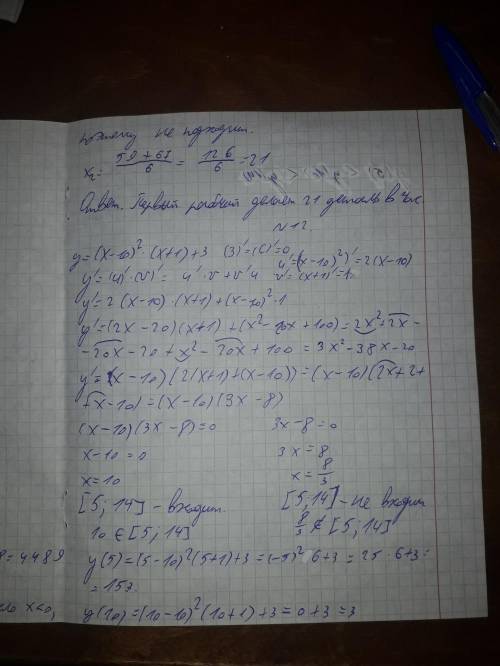 поэтому не подходит.
x₂ = (59+67)/6 = 126/6 = 21
Ответ. Первый рабочий делает 21 деталь в час
N12.
y=(x-10)²·(x+1)+3 (3)'=(C)'=0
u'=((x-10)²)'=2(x-10)
y'=(u)'·(v)'= u'·v+v'u v'=(x+1)'=1
y'=2(x-10)·(x+1)+(x-10)²·1
y'=(2x-20)(x+1)+(x²-20x+100)=2x²+2x-
-20x-20+x²-20x+100=3x²-38x-20
y'=(x-10)(2(x+1)+(x-10))=(x-10)(2x+2+
+x-10)=(x-10)(3x-8)
(x-10)(3x-8)=0 3x-8=0
x-10=0 3x=8
x=10 x=8/3
[5;14]-входит. [5;14]-не входит
10∈[5;14] 8/3∉[5;14]
y(5)=(5-10)²(5+1)+3=(-5)²·6+3=25·6+3=
=4489
=153.
x<0,
y(10)=(10-10)²(10+1)+3=0+3=3